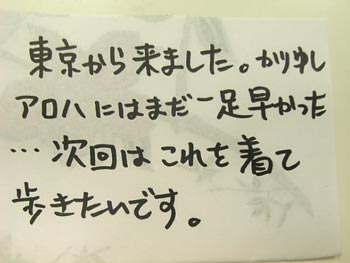 東京から来ました。かりゆし
アロハにはまだ一足早かった
…次回はこれを着て
歩きたいです。